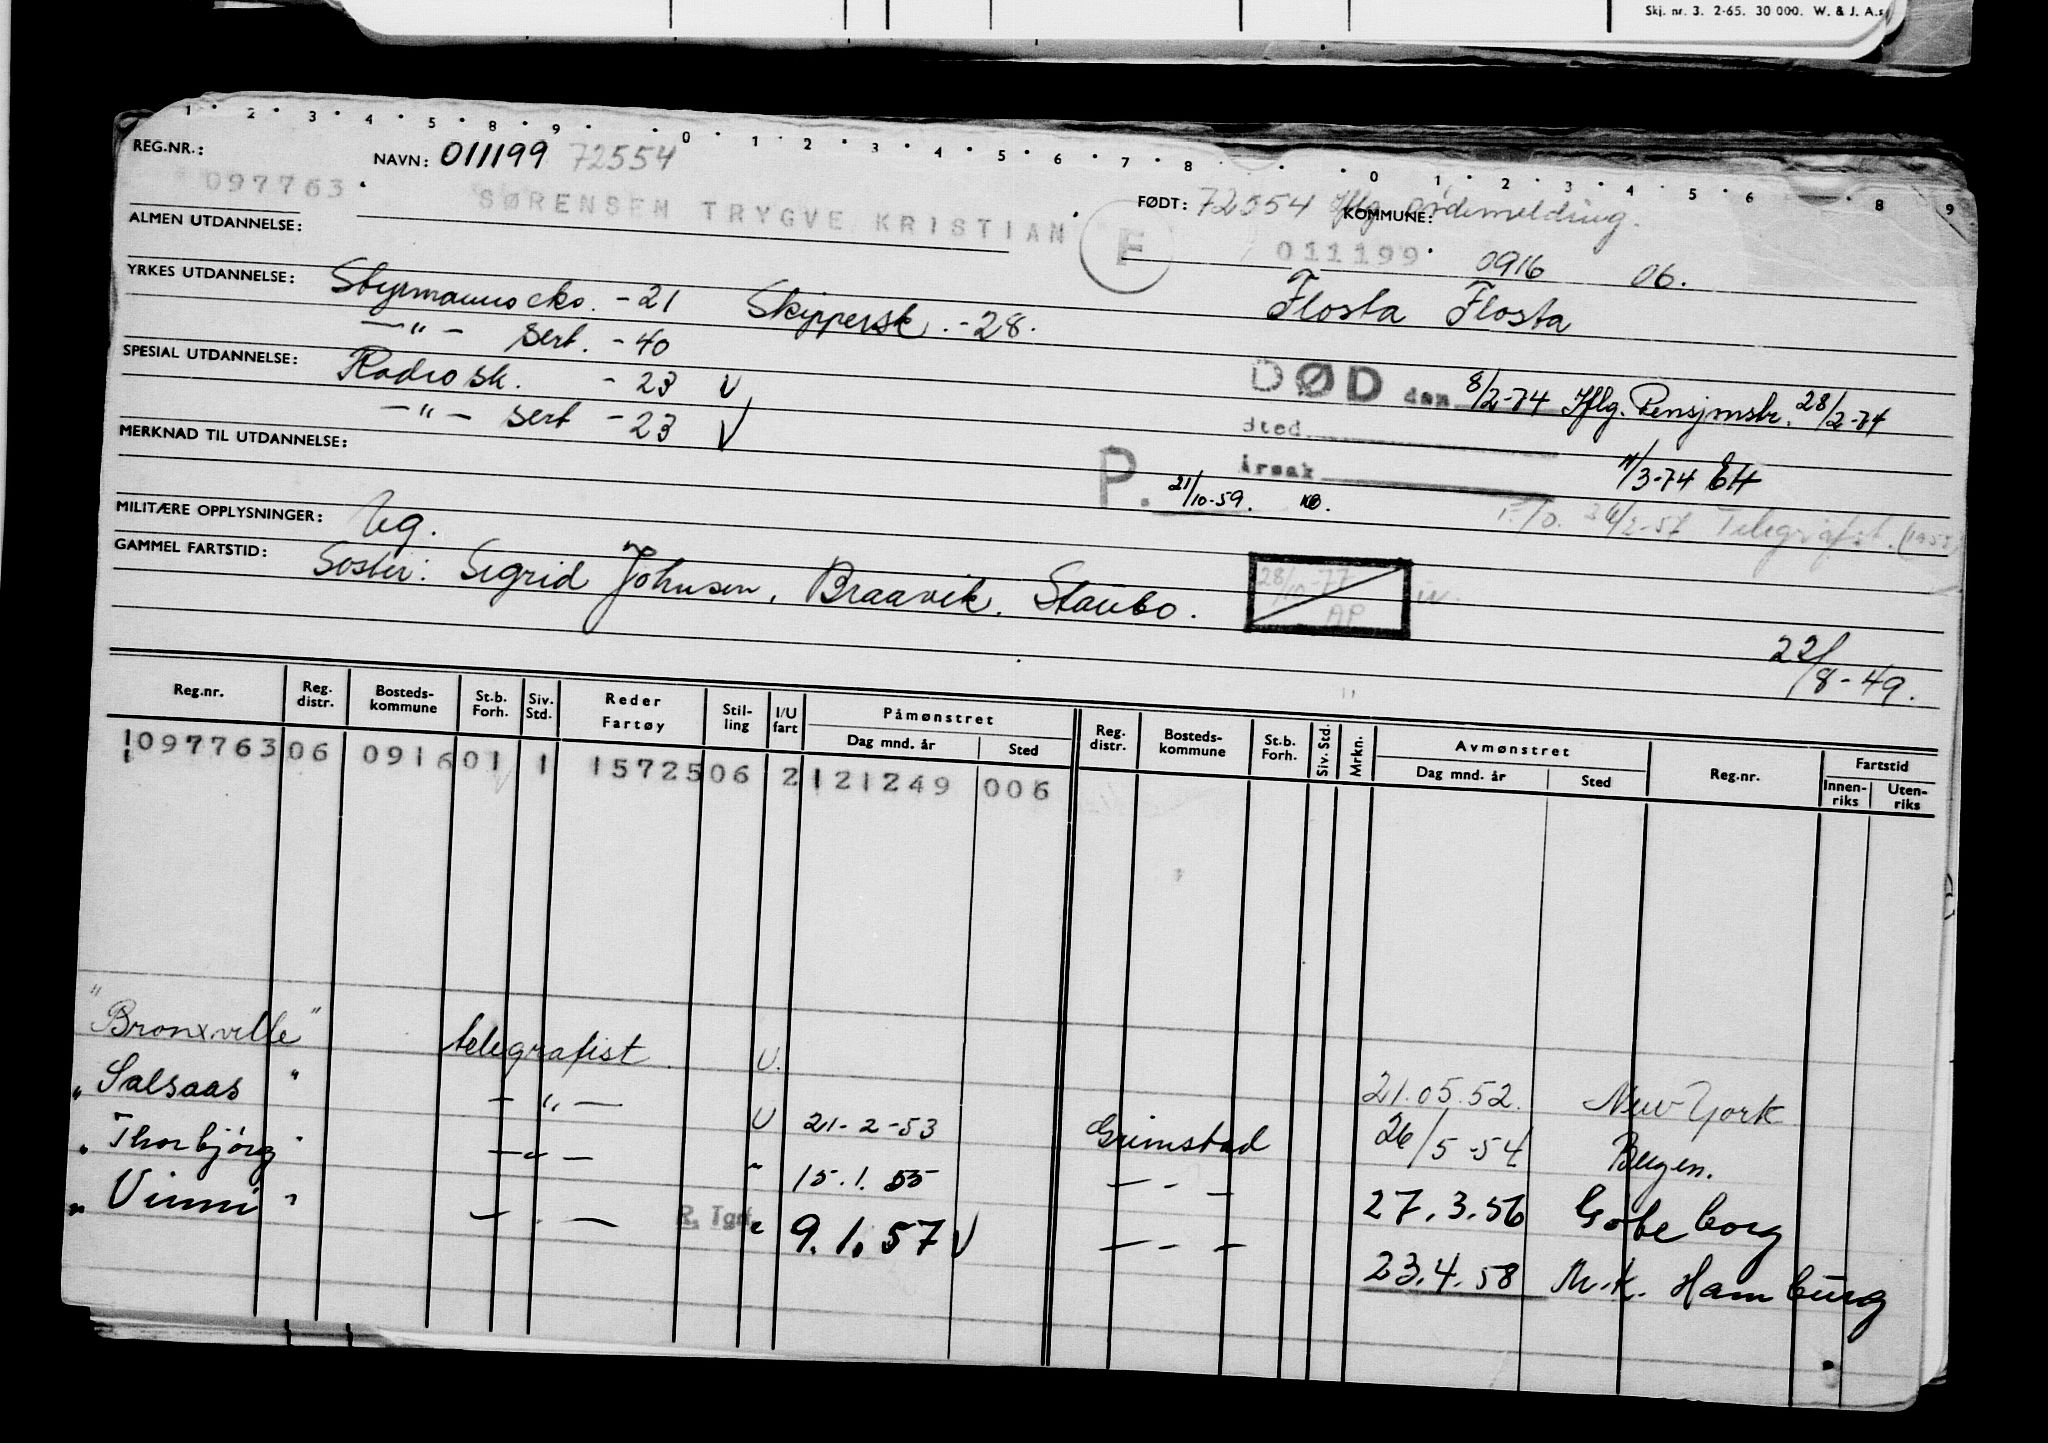 Skj. nr. 3. 2-65. 30 000. W. & J. A.s
1 · 2 · 3 · 4 · 5 · 8 · 9 · · 0 · 1 · 2 · 3 · 4 · 5 · 6 · 7 · 8 · · 0 1 · 2 · 3 · 4 · 5 · 6 · 8 · 9
REG.NR.: NAVN: 011199 72554
097763 SØRENSEN TRYGVE KRISTIAN F FØDT: 72554 Iflg KOMMUNE:
ALMEN UTDANNELSE: 011199 0916 06.
YRKES UTDANNELSE: Styrmannseks. -21 Skippersk. -28. Flosta Flosta
-"- sert. -40
SPESIAL UTDANNELSE: Radiosk. -23 V DØD den 8/2-74 Iflg. Pensjmstr. 28/2-74
-"- sert -23 V
MERKNAD TIL UTDANNELSE: Sted
Årsak 11/3-74 EH
P. 21/10-59.
MILITÆRE OPPLYSNINGER: Ug. Telegrafist.
GAMMEL FARTSTID: Søster: Sigrid Johnsen, Braavik, Staubo. 28/10-77 AP
22/8-49.
Reg.nr. Reg. distr. Bosteds-kommune St.b. Forh. Siv. Std. Reder Fartøy Stil-ling I/U fart Påmønstret Dag mnd. år Sted Reg. distr. Bosteds-kommune St.b. Forh. Siv. Std. Mrkn. Avmønstret Dag mnd. år Sted Reg.nr. Fartstid Innen-riks Uten-riks
1097763 06 0916 01 1 15725 06 2 121249 006
"Bronxville" telegrafist U. 21.05.52. New York
"Salsaas" -"- U 21-2-53 Grimstad 26/5-54 Bergen.
"Thorbjørg" -"- " 15.1.55 - - - 27.3.56 Gøteborg
"Vinni" - . - R. Tgrf. " 9.1.57 V - - - 23.4.58 M.k. Hamburg